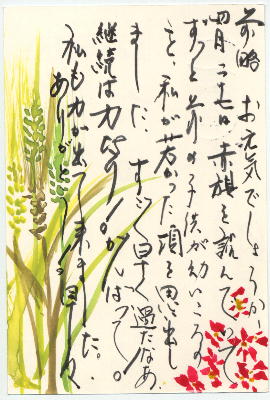 前略 お元気でしょうか、
四月二十七日 赤旗を読んでいて
ずっと前の子供が幼いころの
こと、私が若かった頃を思い出し
ました、すごく早く過たなあ
継続は力なり!!がいばって。
私も力が出て来ました。
ありがとう!!。早々